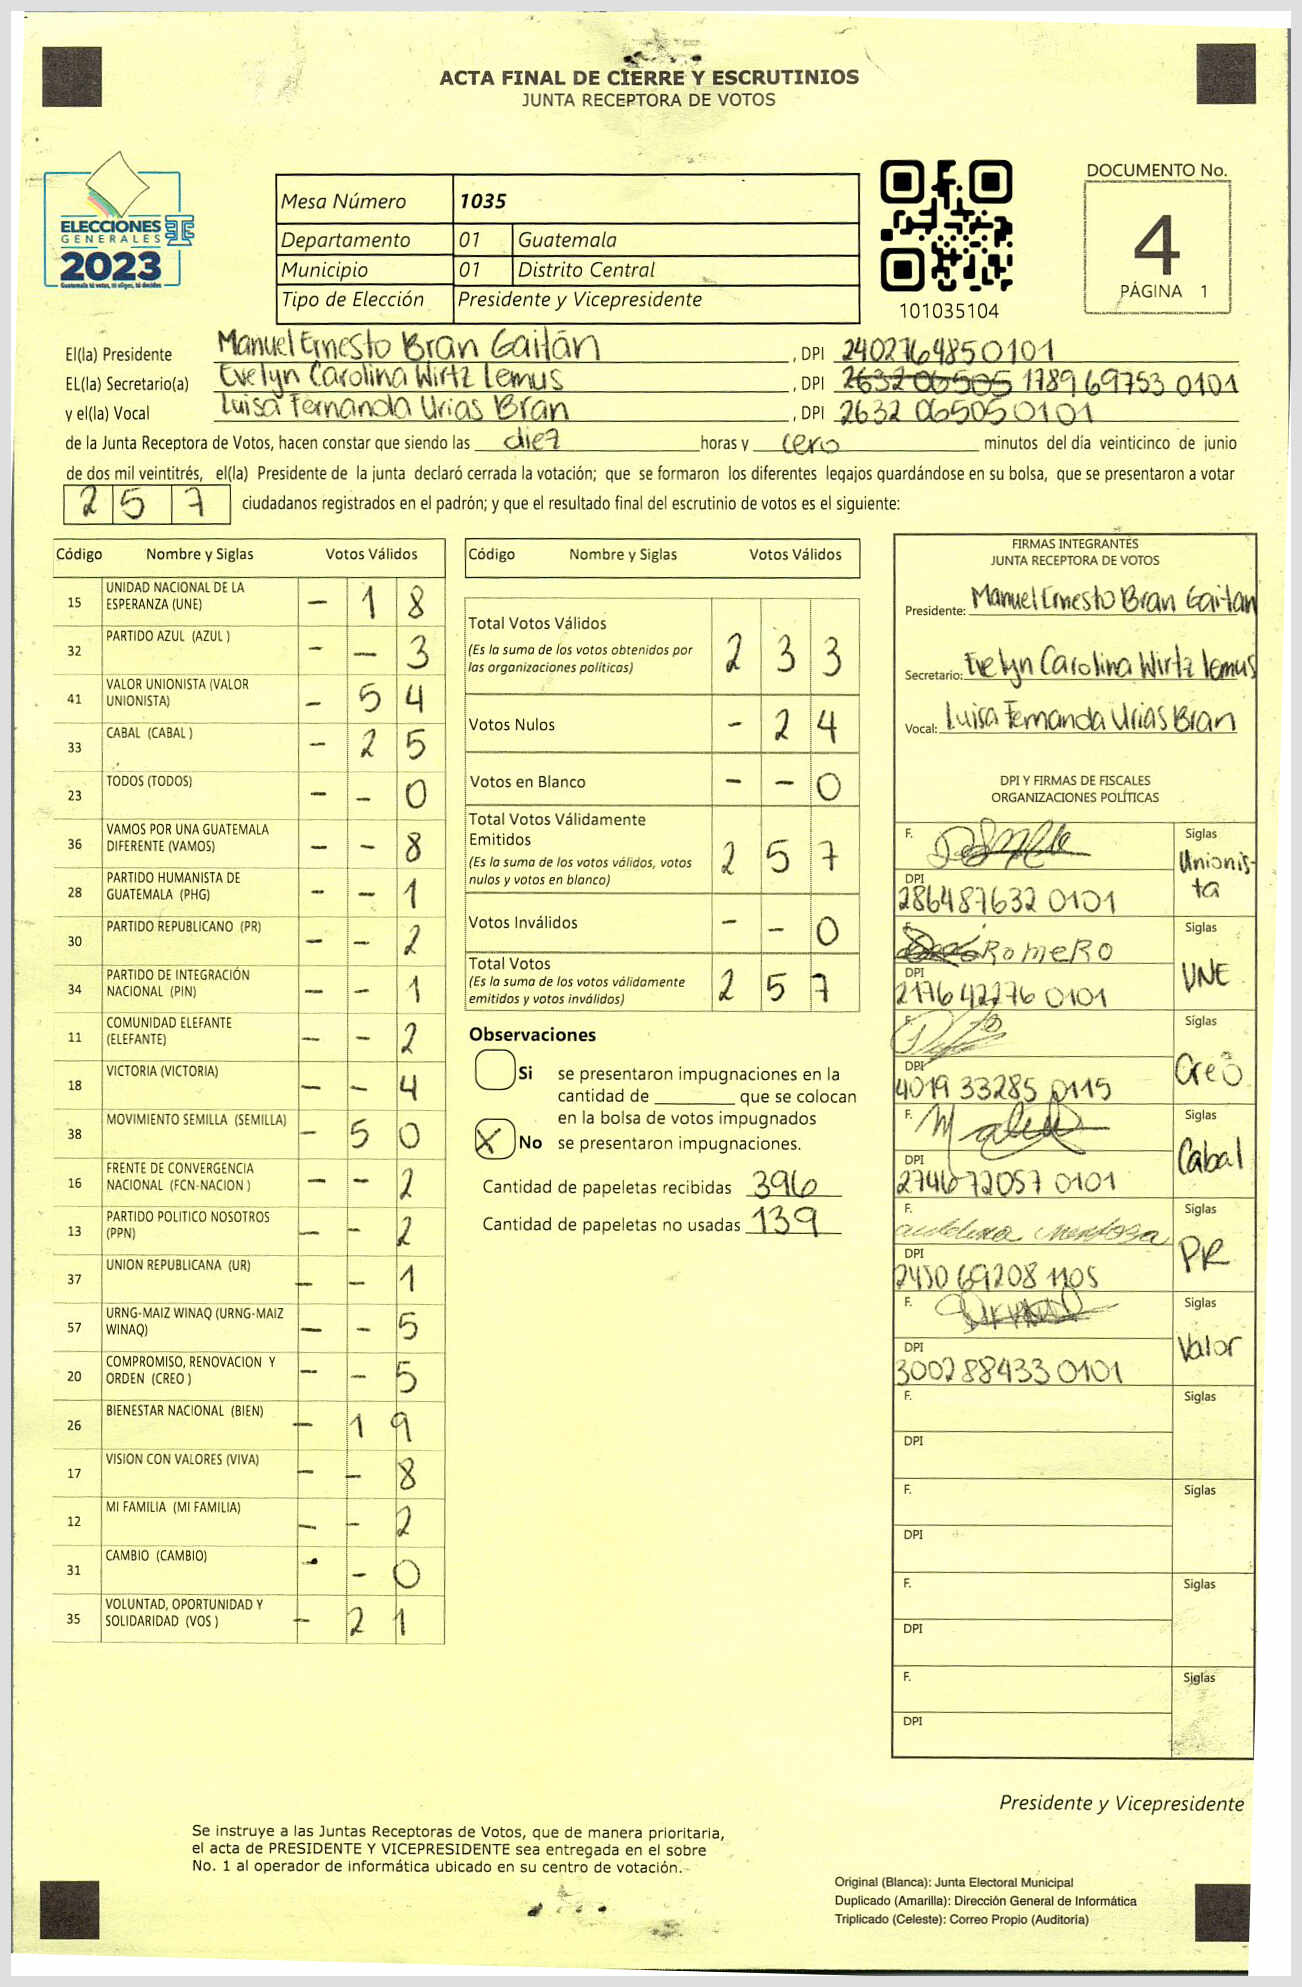 ACTA FINAL DE CIERRE Y ESCRUTINIOS
JUNTA RECEPTORA DE VOTOS
ELECCIONES
GENERALES
2023
Guatemala tú votas, tú eliges, tú decides
Mesa Número 1035
Departamento 01 Guatemala
Municipio 01 Distrito Central
Tipo de Elección Presidente y Vicepresidente
101035104
DOCUMENTO No.
4
PÁGINA 1
El(la) Presidente Manuel Ernesto Bran Gaitán, DPI 2402764850101
EL(la) Secretario(a) Evelyn Carolina Wirtz Lemus, DPI 2632 06505 1789 69753 0101
y el(la) Vocal Luisa Fernanda Urias Bran, DPI 2632 06505 0101
de la Junta Receptora de Votos, hacen constar que siendo las diez horas y cero minutos del día veinticinco de junio
de dos mil veintitrés, el(la) Presidente de la junta declaró cerrada la votación; que se formaron los diferentes legajos guardándose en su bolsa, que se presentaron a votar
257 ciudadanos registrados en el padrón; y que el resultado final del escrutinio de votos es el siguiente:
Código Nombre y Siglas Votos Válidos
15 UNIDAD NACIONAL DE LA ESPERANZA (UNE) - 1 8
32 PARTIDO AZUL (AZUL ) - - 3
41 VALOR UNIONISTA (VALOR UNIONISTA) - 5 4
33 CABAL (CABAL ) - 2 5
23 TODOS (TODOS) - - 0
36 VAMOS POR UNA GUATEMALA DIFERENTE (VAMOS) - - 8
28 PARTIDO HUMANISTA DE GUATEMALA (PHG) - - 1
30 PARTIDO REPUBLICANO (PR) - - 2
34 PARTIDO DE INTEGRACIÓN NACIONAL (PIN) - - 1
11 COMUNIDAD ELEFANTE (ELEFANTE) - - 2
18 VICTORIA (VICTORIA) - - 4
38 MOVIMIENTO SEMILLA (SEMILLA) - 5 0
16 FRENTE DE CONVERGENCIA NACIONAL (FCN-NACION ) - - 2
13 PARTIDO POLITICO NOSOTROS (PPN) - - 2
37 UNION REPUBLICANA (UR) - - 1
57 URNG-MAIZ WINAQ (URNG-MAIZ WINAQ) - - 5
20 COMPROMISO, RENOVACION Y ORDEN (CREO ) - - 5
26 BIENESTAR NACIONAL (BIEN) - 1 9
17 VISION CON VALORES (VIVA) - - 8
12 MI FAMILIA (MI FAMILIA) - - 2
31 CAMBIO (CAMBIO) - - 0
35 VOLUNTAD, OPORTUNIDAD Y SOLIDARIDAD (VOS ) - 2 1
Código Nombre y Siglas Votos Válidos
Total Votos Válidos 2 3 3
(Es la suma de los votos obtenidos por
las organizaciones políticas)
Votos Nulos - 2 4
Votos en Blanco - - 0
Total Votos Válidamente
Emitidos 2 5 7
(Es la suma de los votos válidos, votos
nulos y votos en blanco)
Votos Inválidos - - 0
Total Votos 2 5 7
(Es la suma de los votos válidamente
emitidos y votos inválidos)
Observaciones
Si se presentaron impugnaciones en la
cantidad de ________ que se colocan
en la bolsa de votos impugnados
X No se presentaron impugnaciones.
Cantidad de papeletas recibidas 396
Cantidad de papeletas no usadas 139
FIRMAS INTEGRANTES
JUNTA RECEPTORA DE VOTOS
Presidente: Manuel Ernesto Bran Gaitan
Secretario: Evelyn Carolina Wirtz Lemus
Vocal: Luisa Fernanda Urias Bran
DPI Y FIRMAS DE FISCALES
ORGANIZACIONES POLÍTICAS
F. Siglas Unionista
DPI 286487632 0101
F. ROMERO Siglas UNE
DPI 217642276 0101
F. Siglas Creo
DPI 4019 33285 0115
F. Siglas Cabal
DPI 274672057 0101
F. Mendoza Siglas PR
DPI 2450 69208 1105
F. Siglas Valor
DPI 300288433 0101
F. Siglas
DPI
F. Siglas
DPI
F. Siglas
DPI
F. Siglas
DPI
Presidente y Vicepresidente
Se instruye a las Juntas Receptoras de Votos, que de manera prioritaria,
el acta de PRESIDENTE Y VICEPRESIDENTE sea entregada en el sobre
No. 1 al operador de informática ubicado en su centro de votación.
Original (Blanca): Junta Electoral Municipal
Duplicado (Amarilla): Dirección General de Informática
Triplicado (Celeste): Correo Propio (Auditoría)